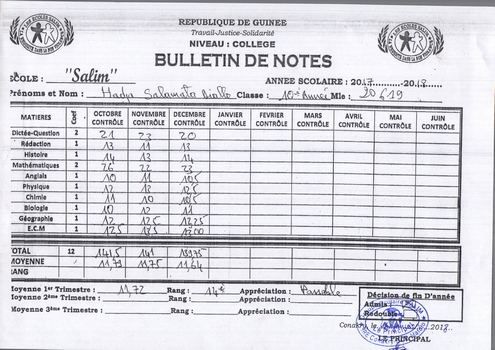 REPUBLIQUE DE GUINEE
Travail-Justice-Solidarité
NIVEAU : COLLEGE
BULLETIN DE NOTES
ECOLE : "Salim" ANNEE SCOLAIRE : 2017-2018
Prénoms et Nom : Hadja Salamata Diallo Classe : 10è Année Mle : 20619
MATIERES Coef OCTOBRE CONTRÔLE NOVEMBRE CONTRÔLE DECEMBRE CONTRÔLE JANVIER CONTRÔLE FEVRIER CONTRÔLE MARS CONTRÔLE AVRIL CONTRÔLE MAI CONTRÔLE JUIN CONTRÔLE
Dictée-Question 2 21 23 20
Rédaction 1 13 11 13
Histoire 1 14 13 14
Mathématiques 2 26 22 23
Anglais 1 10 11 10,5
Physique 1 12 13 12,5
Chimie 1 11 10 10,5
Biologie 1 10 12 11
Géographie 1 12 12,5 12,25
E.C.M 1 12,5 13,5
TOTAL 12 141,5 141 139,75
MOYENNE 11,79 11,75 11,64
RANG
Moyenne 1er Trimestre : 11,72 Rang : 14è Appréciation : Passable
Moyenne 2ème Trimestre : Rang : Appréciation :
Moyenne 3ème Trimestre : Rang : Appréciation :
Décision de fin D'année
Admis :
Redouble :
Conakry, le 2018
LE PRINCIPAL